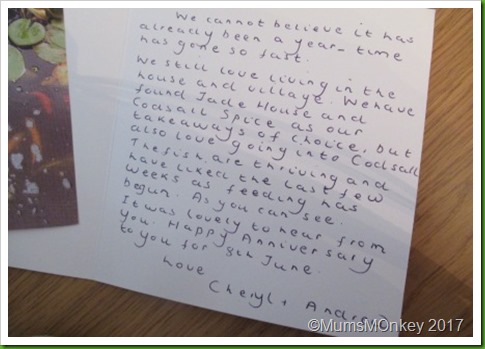 We cannot believe it has
already been a year - time
has gone so fast.
We still love living in the
house and village. We have
found Jade House and
Codsall Spice as our
takeaways of choice, but
also love going into Codsall
The fish are thriving and
have liked the last few
weeks as feeding has
begun. As you can see.
It was lovely to hear from
you. Happy Anniversary
to you for 8th June.
Love
Cheryl +
©MumsMOnkey 2017